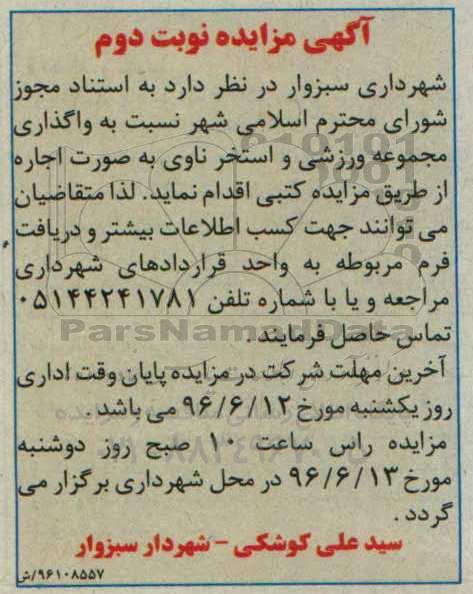 آگهی مزایده نوبت دوم
شهرداری سبزوار در نظر دارد به استناد مجوز
شورای محترم اسلامی شهر نسبت به واگذاری
مجموعه ورزشی و استخر ناوی به صورت اجاره
از طریق مزایده کتبی اقدام نماید. لذا متقاضیان
می توانند جهت کسب اطلاعات بیشتر و دریافت
فرم مربوطه به واحد قراردادهای شهرداری
مراجعه و یا با شماره تلفن ۰۵۱۴۴۲۴۱۷۸۱
تماس حاصل فرمایند.
ParsNamadData
آخرین مهلت شرکت در مزایده پایان وقت اداری
روز یکشنبه مورخ ۹۶/۶/۱۲ می باشد.
مزایده راس ساعت ۱۰ صبح روز دوشنبه
مورخ ۹۶/۶/۱۳ در محل شهرداری برگزار می
گردد.
سید علی کوشکی - شهردار سبزوار
۹۶۱۰۸۵۵۷/ش